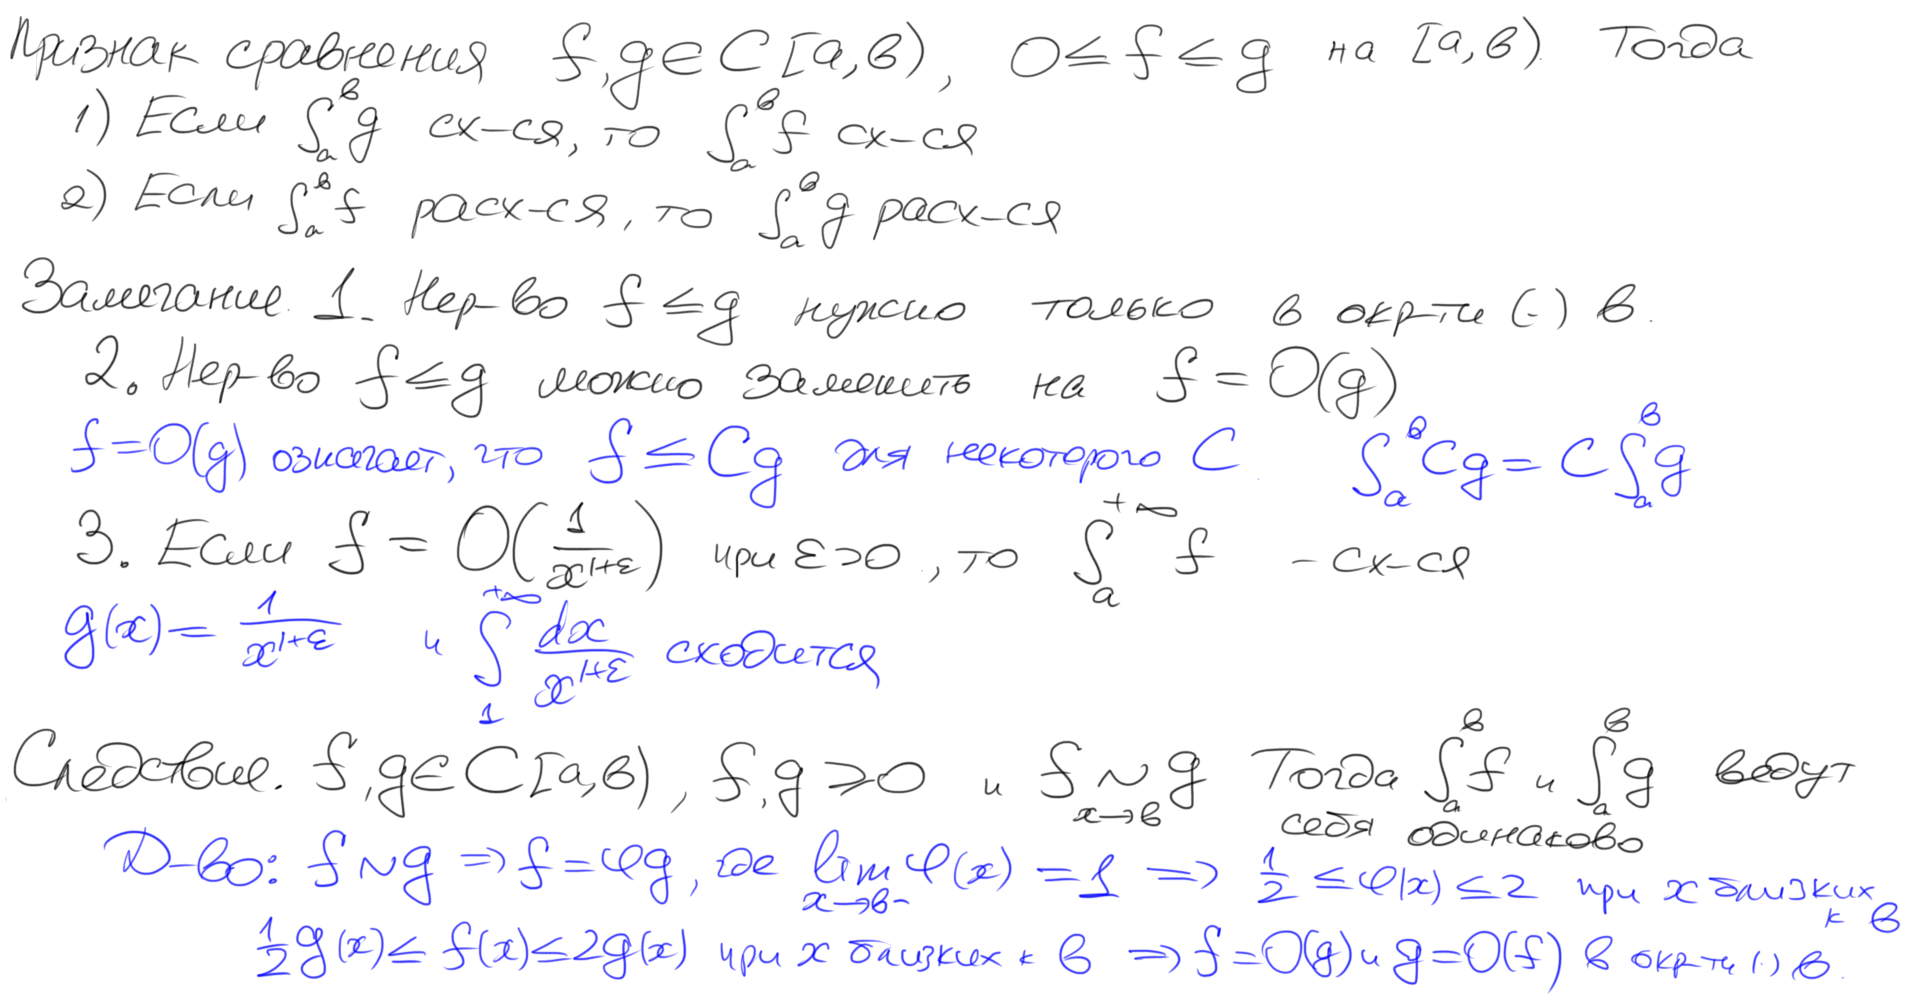 Признак сравнения f, g ∈ C[a,b), 0 ≤ f ≤ g на [a,b). Тогда
1) Если ∫_a^b g сх-ся, то ∫_a^b f сх-ся
2) Если ∫_a^b f расх-ся, то ∫_a^b g расх-ся
Замечание. 1. Нер-во f ≤ g нужно только в окр-ти (·) b.
2. Нер-во f ≤ g можно заменить на f = O(g)
f = O(g) означает, что f ≤ Cg для некоторого C ∫_a^b Cg = C ∫_a^b g
3. Если f = O(1/x^{1+ε}) при ε>0, то ∫_a^{+∞} f - сх-ся
g(x) = 1/x^{1+ε} и ∫_1^{+∞} dx/x^{1+ε} сходится
Следствие. f, g ∈ C[a,b), f, g ≥ 0 и f ~ g x→b Тогда ∫_a^b f и ∫_a^b g ведут
себя одинаково
Д-во: f ~ g ⇒ f = φg, где lim_{x→b-} φ(x) = 1 ⇒ 1/2 ≤ φ(x) ≤ 2 при x близких
к b
1/2 g(x) ≤ f(x) ≤ 2g(x) при x близких к b ⇒ f = O(g) и g = O(f) в окр-ти (·) b.